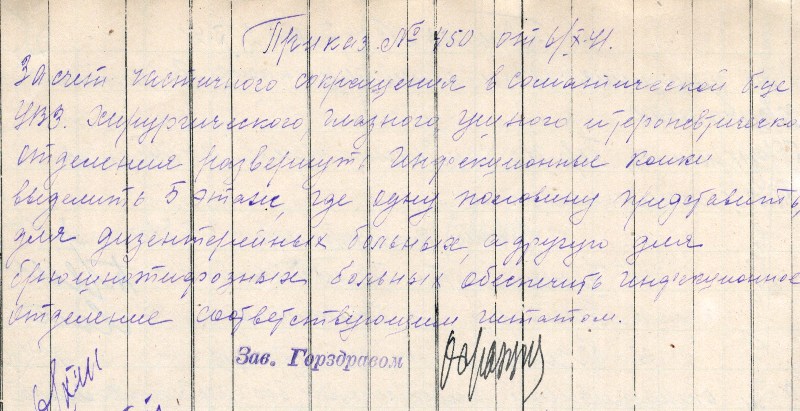 Приказ № 450 от 6/X-41.
За счет частичного сокращения в соматической б-це
УВЗ. хирургического, глазного ушного и терапевтическо
отделения развернуть инфекционные койки
выделить 5 этаж, где одну половину представить,
для дизентерейных больных, а другую для
брюшнотифозных больных обеспечить инфекционное
отделение соответствующим штатом.
Зав. Горздравом